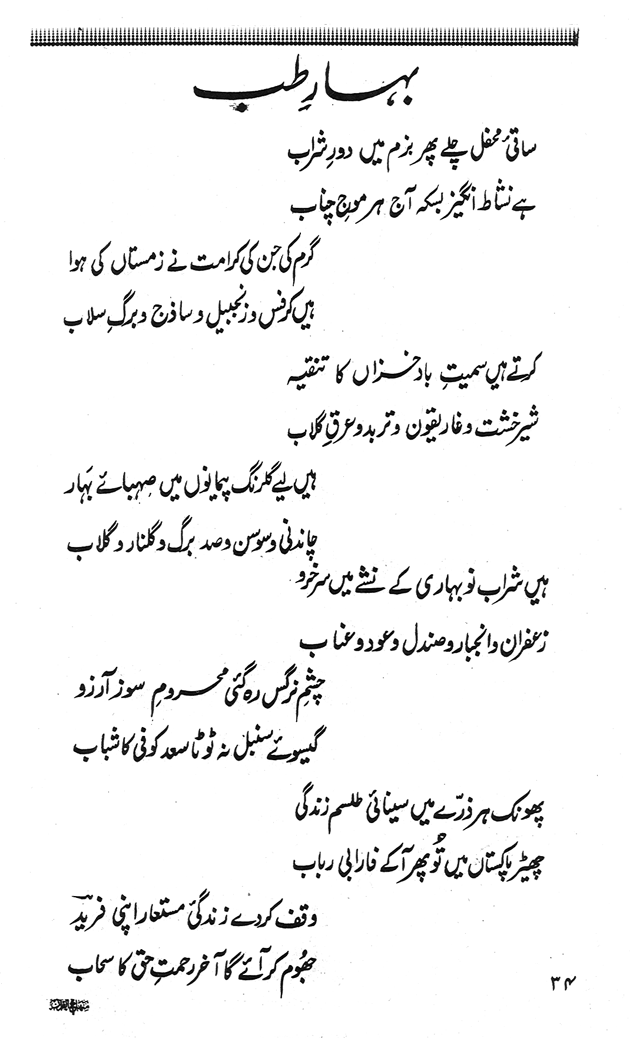 بہارِ طب
ساقیٔ محفل چلے پھر بزم میں دورِ شراب
ہے نشاط انگیز بسکہ آج ہر موجِ چناب
گرم کی جن کی کرامت نے زمستاں کی ہوا
ہیں کرفس و زنجبیل و ساذج و برگِ سلاب
کرتے ہیں سمیتِ بادِ خزاں کا تنقیہ
شیر خشت و غاریقون و تربد و عرقِ گلاب
ہیں لیے گلرنگ پیمانوں میں صہبائے بہار
چاندنی و سوسن و صد برگ و گلنار و گلاب
ہیں شراب نو بہاری کے نشے میں سرخرو
زعفران و انجبار و صندل و عود و عناب
چشمِ نرگس رہ گئی محرومِ سوز آرزو
گیسوئے سنبل نہ ٹوٹا سعد کوفی کا شباب
پھونک ہر ذرّے میں سینائی طلسم زندگی
چھیڑ پاکستاں میں تُو پھر آ کے فارابی رباب
وقف کر دے زندگیٔ مستعار اپنی فریدؔ
جھُوم کر آئے گا آخر رحمتِ حق کا سحاب
۳۴